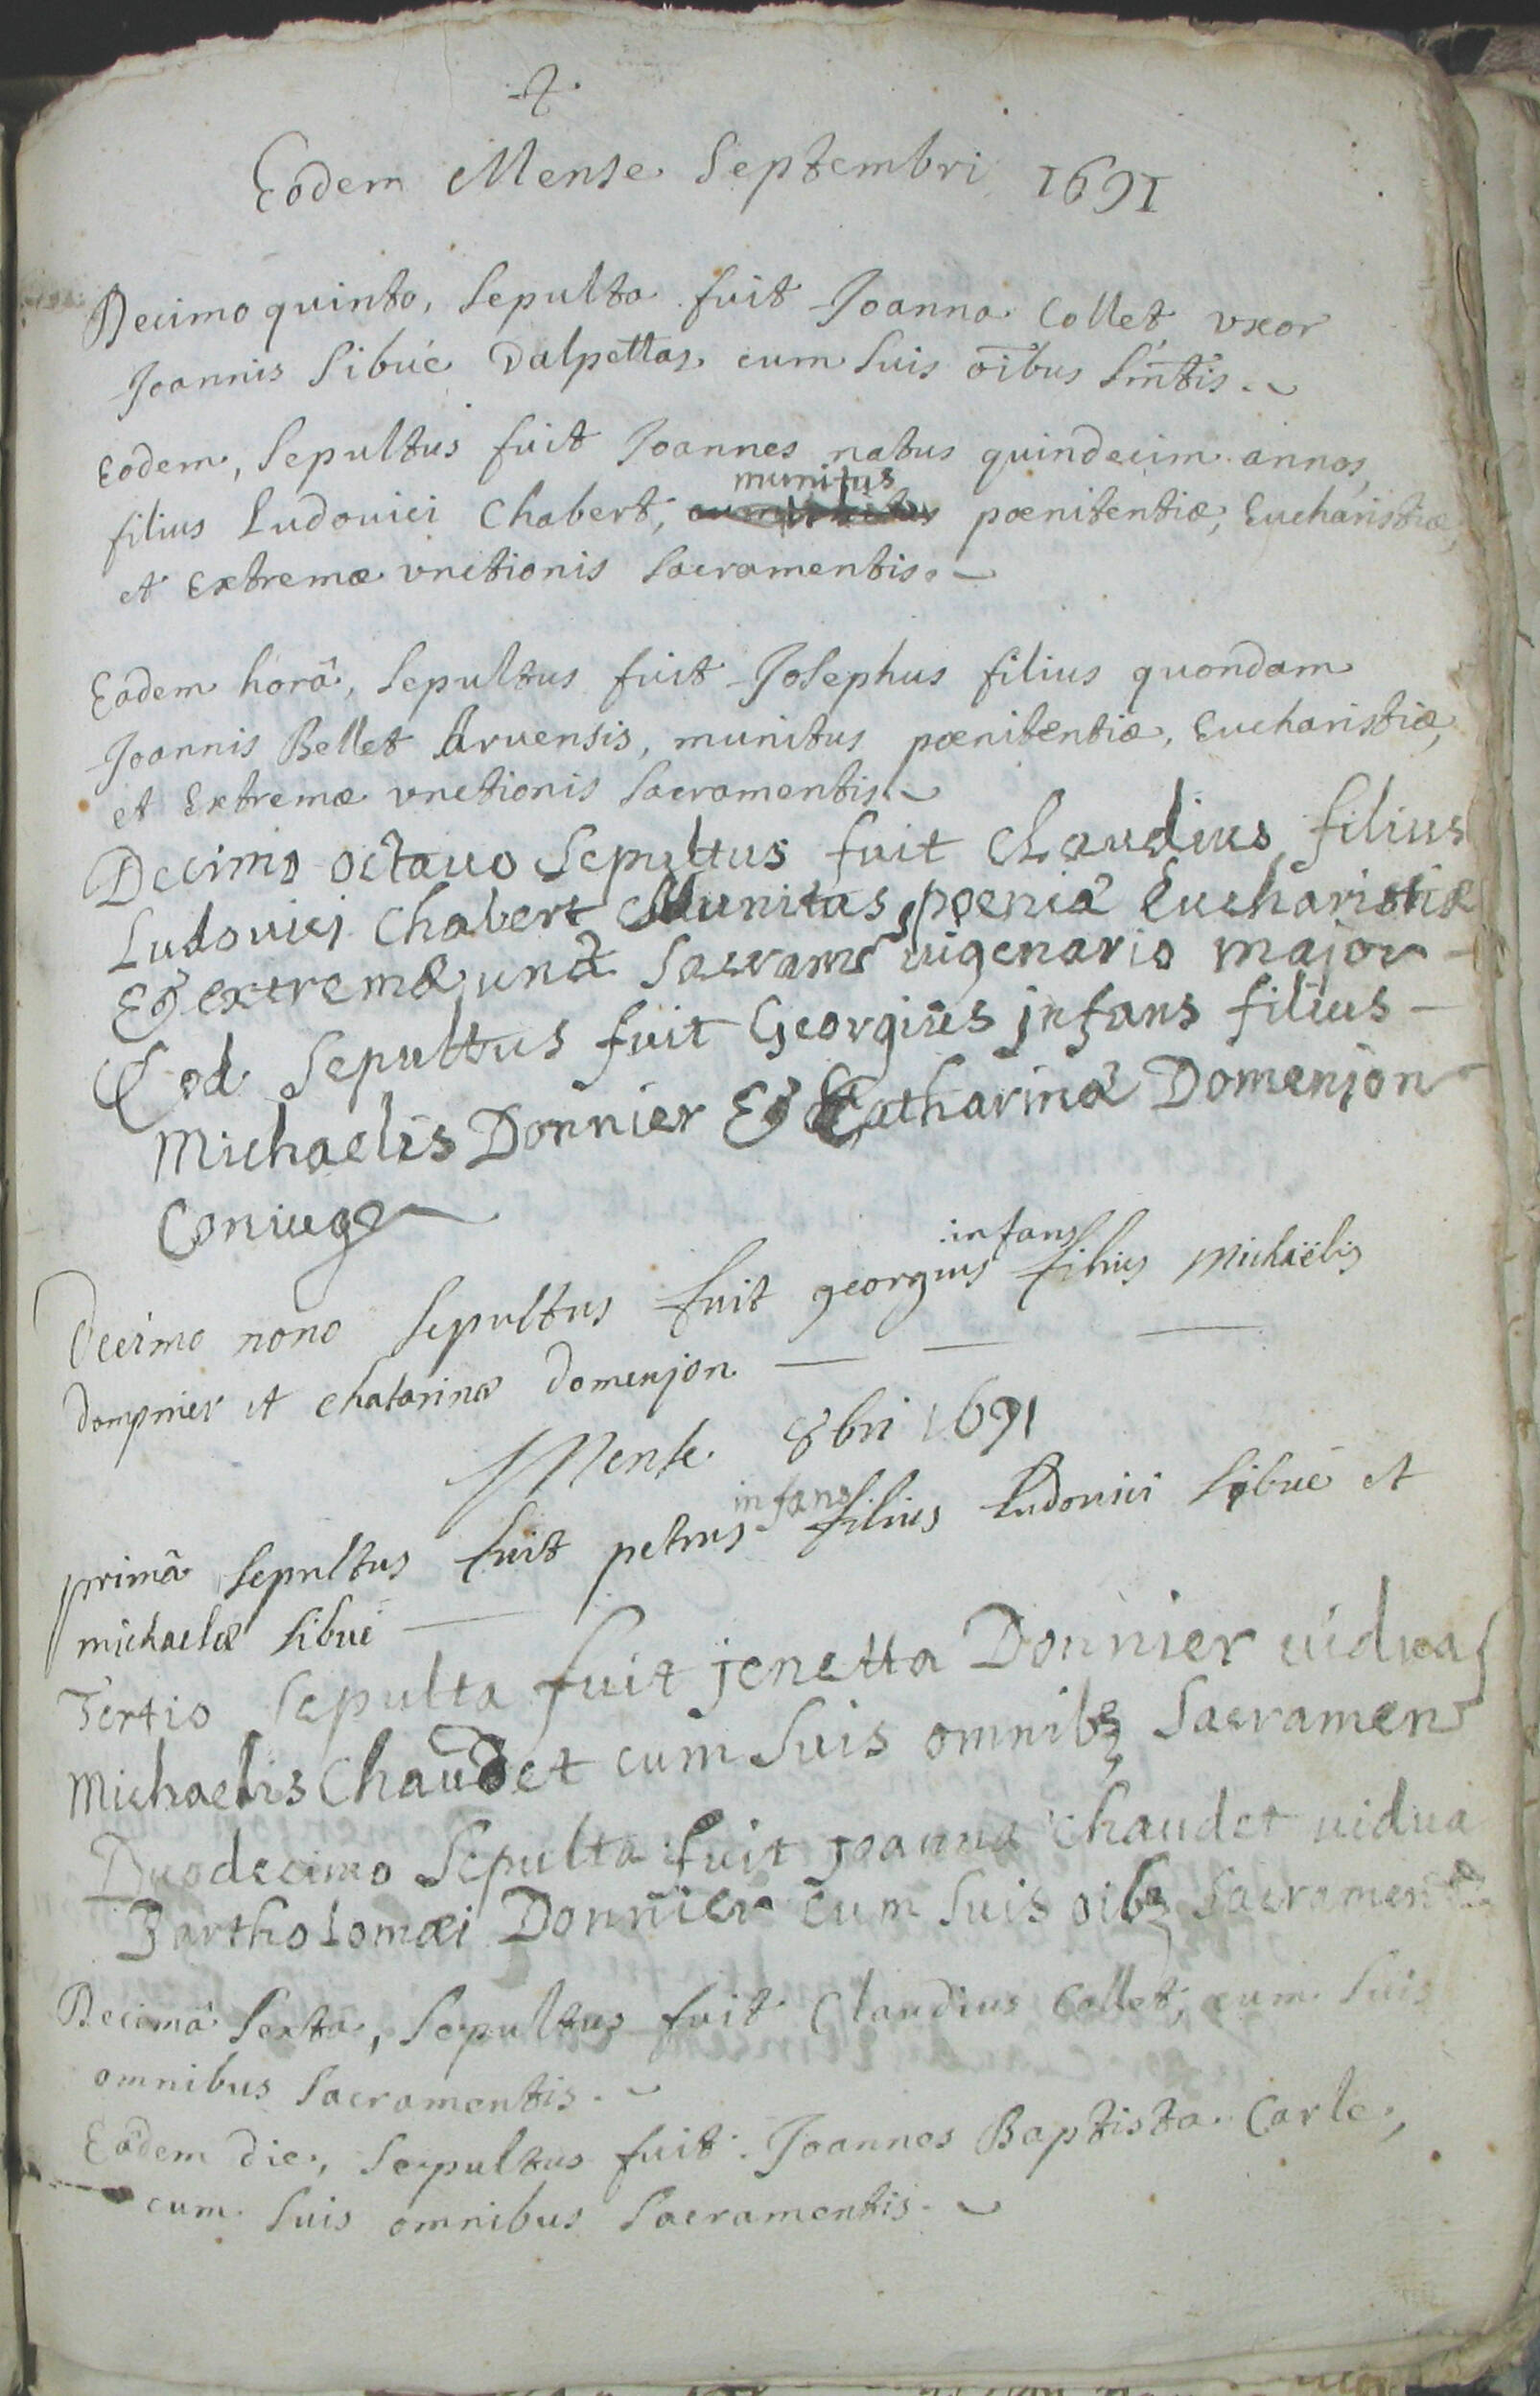 Eodem Mense Septembri 1691
Decimo quinto, Sepulta fuit Joanna Collet vxor
Joannis Sibué Dalpettaz cum suis oībus Sm̄tis.
Eodem, Sepultus fuit Joannes natus quindecim annos,
munitus
filius Ludovici Chabert, pœnitentiæ, Eucharistiæ,
et Extremæ vnctionis Sacramentis.
Eadem horâ, Sepultus fuit Josephus filius quondam
Joannis Bellet Aruensis, munitus pœnitentiæ, Eucharistiæ,
et Extremæ vnctionis Sacramentis.
Decimo octauo Sepultus fuit Claudius filius
Ludouici Chabert Munitus pœniæ Eucharistiæ
& extremæ unæ Sacram uigenario major
Eod Sepultus fuit Georgius infans filius
Michaelis Donnier & Catharinæ Domenjon
Coniuge
Decimo nono Sepultus fuit georgius infans filius Michaëlis
dompnier et Chatarinæ domenjon
Mense 8bri 1691
primâ Sepultus fuit petrus infans filius Ludovici Sibué et
michaelæ Sibué
Tertio Sepulta fuit jenetta Donnier uidua
Michaelis Chaudet cum Suis omnibꝫ Sacramen
Duodecimo Sepulta fuit Joanna Chaudet uidua
Bartholomæi Donnier cum Suis oibꝫ Sacrament
Decimâ Sextâ, Sepultus fuit Claudius Collet, cum Suis
omnibus Sacramentis.
Eâdem die, Sepultus fuit Joannes Baptista Carle,
cum Suis omnibus Sacramentis.